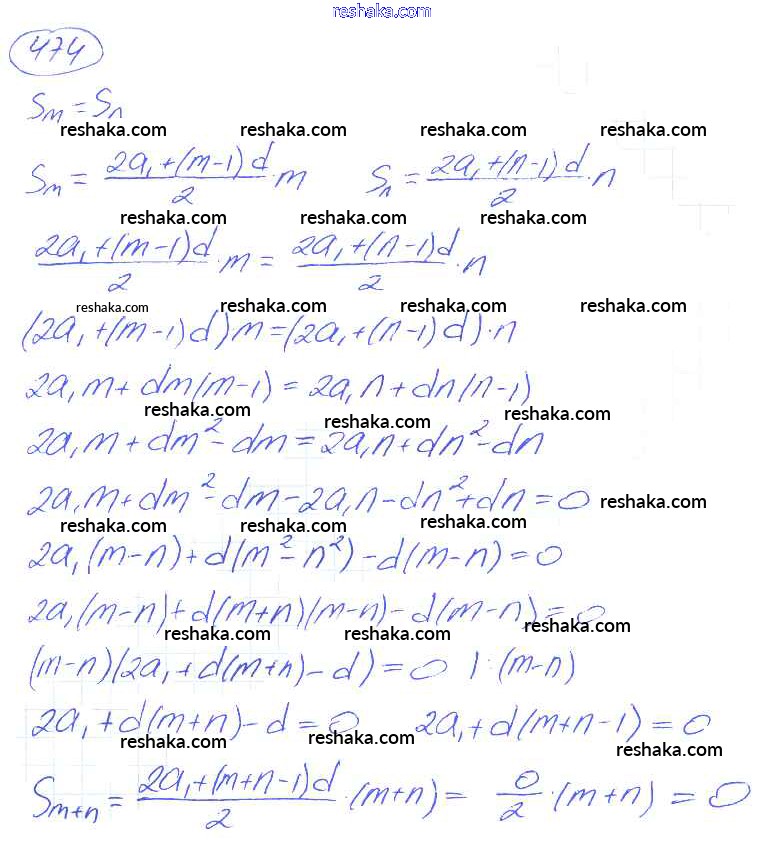 reshaka.com
474
Sm = Sn
reshaka.com reshaka.com reshaka.com reshaka.com
Sm = (2a₁+(m-1)d)/2 · m Sn = (2a₁+(n-1)d)/2 · n
reshaka.com reshaka.com reshaka.com
(2a₁+(m-1)d)/2 · m = (2a₁+(n-1)d)/2 · n
reshaka.com reshaka.com reshaka.com reshaka.com
(2a₁+(m-1)d)m=(2a₁+(n-1)d)·n
2a₁m+dm(m-1) = 2a₁n+dn(n-1)
reshaka.com reshaka.com reshaka.com
2a₁m+dm²-dm=2a₁n+dn²-dn
2a₁m+dm²-dm-2a₁n-dn²+dn=0 reshaka.com
reshaka.com reshaka.com reshaka.com
2a₁(m-n)+d(m²-n²)-d(m-n)=0
2a₁(m-n)+d(m+n)(m-n)-d(m-n)=0
reshaka.com reshaka.com reshaka.com
(m-n)(2a₁+d(m+n)-d)=0 |:(m-n)
2a₁+d(m+n)-d=0 2a₁+d(m+n-1)=0
reshaka.com reshaka.com reshaka.com reshaka.com
Sm+n = (2a₁+(m+n-1)d)/2 ·(m+n)= 0/2 ·(m+n) = 0